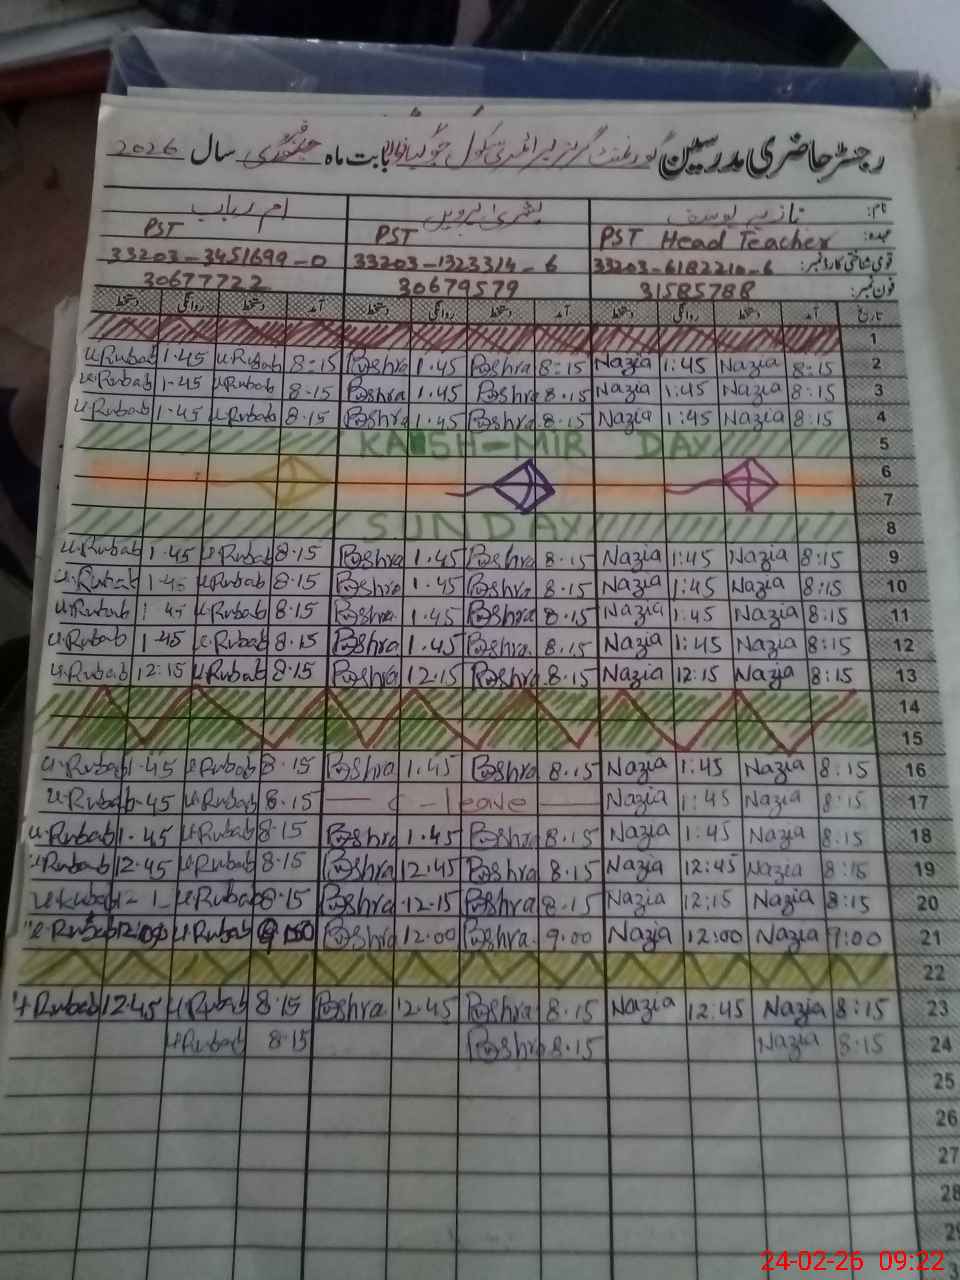 رجسٹر حاضری مدرسین گورنمنٹ گرلز پرائمری سکول بابت ماہ فروری سال 2026
نام: نازیہ یوسف بشریٰ پروین ام رباب
عہدہ: PST Head Teacher PST PST
قومی شناختی کارڈ نمبر: 33203-6182210-6 33203-1323314-6 33203-3451699-0
فون نمبر: 31585788 30679579 30677722
تاریخ آمد دستخط روانگی دستخط آمد دستخط روانگی دستخط آمد دستخط روانگی دستخط
1
U.Rubab 1.45 U.Rubab 8:15 Bshra 1.45 Bshra 8:15 Nazia 1:45 Nazia 8:15 2
U.Rubab 1.45 U.Rubab 8.15 Bshra 1.45 Bshra 8.15 Nazia 1:45 Nazia 8:15 3
U.Rubab 1.45 U.Rubab 8.15 Bshra 1.45 Bshra 8.15 Nazia 1:45 Nazia 8:15 4
KASH-MIR DAY 5
6
7
SUNDAY 8
U.Rubab 1.45 U.Rubab 8.15 Bshra 1.45 Bshra 8.15 Nazia 1:45 Nazia 8:15 9
U.Rubab 1.45 U.Rubab 8.15 Bshra 1.45 Bshra 8.15 Nazia 1:45 Nazia 8:15 10
U.Rubab 1.45 U.Rubab 8.15 Bshra 1.45 Bshra 8.15 Nazia 1:45 Nazia 8:15 11
U.Rubab 1.45 U.Rubab 8.15 Bshra 1.45 Bshra 8.15 Nazia 1:45 Nazia 8:15 12
U.Rubab 12:15 U.Rubab 8.15 Bshra 12.15 Bshra 8.15 Nazia 12:15 Nazia 8:15 13
14
15
U.Rubab 1.45 U.Rubab 8.15 Bshra 1.45 Bshra 8.15 Nazia 1:45 Nazia 8:15 16
U.Rubab 1.45 U.Rubab 8.15 — C-leave — Nazia 1:45 Nazia 8:15 17
U.Rubab 1.45 U.Rubab 8.15 Bshra 1.45 Bshra 8.15 Nazia 1:45 Nazia 8.15 18
U.Rubab 12.45 U.Rubab 8.15 Bshra 12.45 Bshra 8.15 Nazia 12:45 Nazia 8:15 19
U.Rubab U.Rubab 8.15 Bshra 12.15 Bshra 8.15 Nazia 12:15 Nazia 8:15 20
U.Rubab 12.00 U.Rubab 9.00 Bshra 12.00 Bshra 9.00 Nazia 12:00 Nazia 9:00 21
22
U.Rubab 12.45 U.Rubab 8.15 Bshra 12.45 Bshra 8.15 Nazia 12:45 Nazia 8:15 23
U.Rubab 8.15 Bshra 8.15 Nazia 8:15 24
25
26
27
28
29
24-02-26 09:22